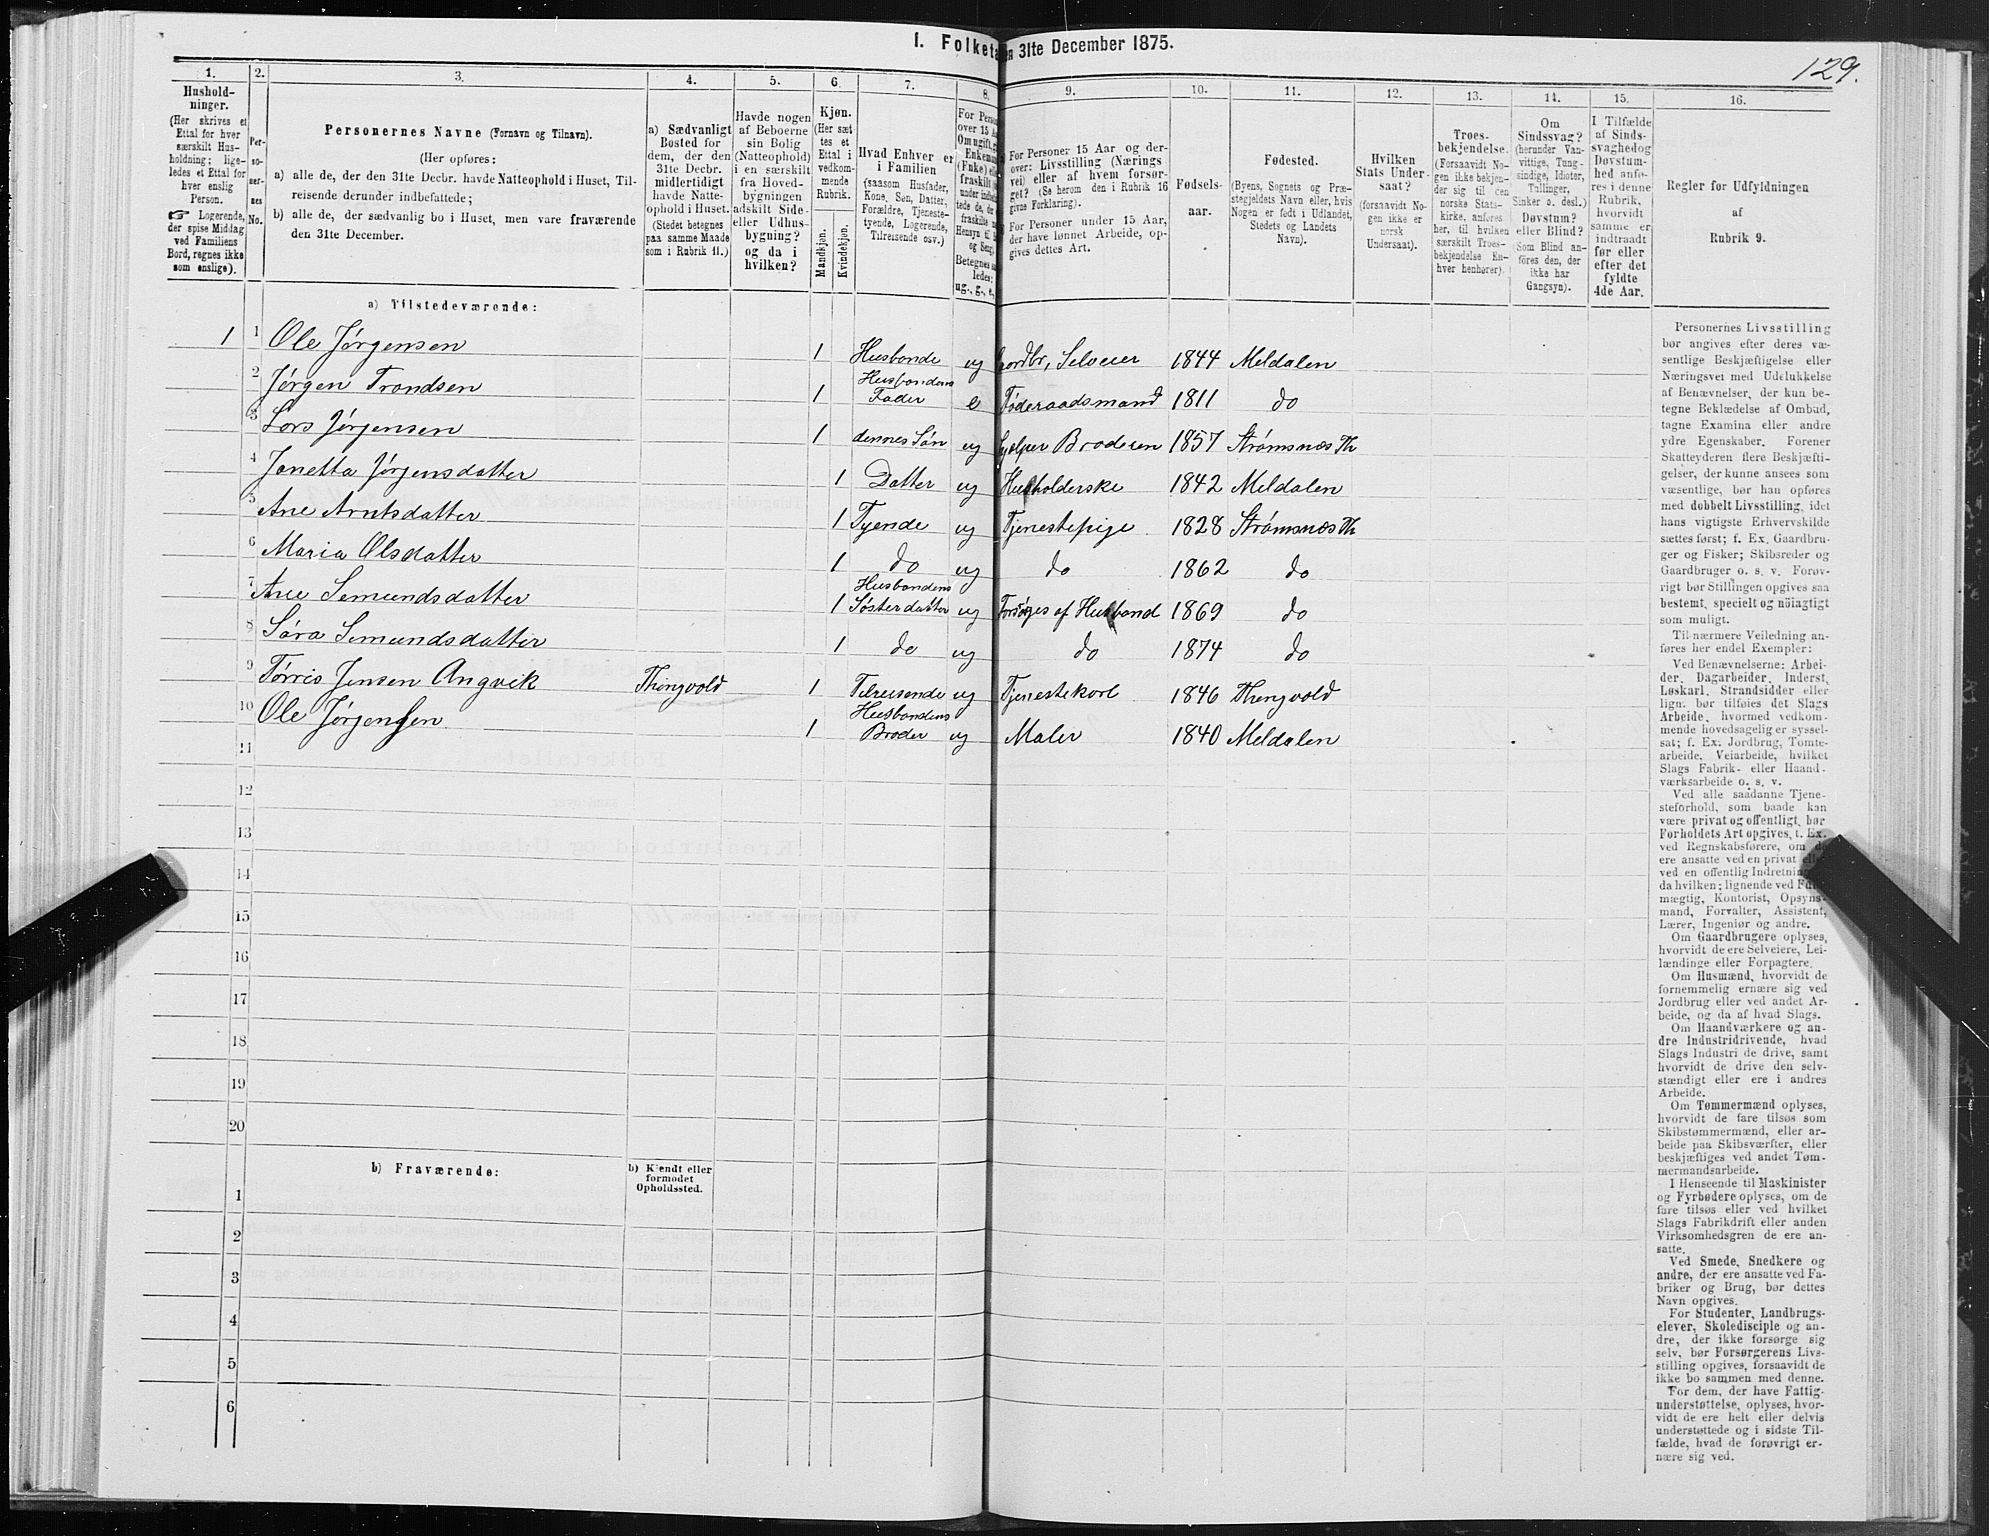 I. Folketa en 31te December 1875.
129.
1.
2.
3.
4.
5.
6.
7.
8.
9.
10.
11.
12.
13.
14.
15.
16.
Hushold-
ninger.
(Her skrives et
Ettal for hver
særskilt Hus-
holdning; lige-
ledes et Ettal for
hver enslig
Person.
☞ Logerende,
der spise Middag
ved Familiens
Bord, regnes ikke
som enslige).
Per-
so-
ner-
nes
No.
Personernes Navne (Fornavn og Tilnavn).
(Her opføres:
a) alle de, der den 31te Decbr. havde Natteophold i Huset, Til-
reisende derunder indbefattede;
b) alle de, der sædvanlig bo i Huset, men vare fraværende
den 31te December.
a) Sædvanligt
Bosted for
dem, der den
31te Decbr.
midlertidigt
havde Natte-
ophold i Huset.
(Stedet betegnes
paa samme Maade
som i Rubrik 11.)
Havde nogen
af Beboerne
sin Bolig
(Natteophold)
i en særskilt
fra Hoved-
bygningen
adskilt Side-
eller Udhus-
bygning?
og da i
hvilken?
Kjøn.
(Her sæt
tes et
Ettal i
vedkom-
mende
Rubrik.
Mandkjøn.
Kvindekjøn.
Hvad Enhver er
i Familien
(saasom Husfader,
Kone, Søn, Datter,
Forældre, Tjeneste-
tyende, Logerende,
Tilreisende osv.)
For Perso
over 15 Aa
Om ugift, g
Enkeman
(Enke) el
fraskilt
under indbe
tede de, der
fraskilte
Hensyn til
og Seng.
Betegnes
ledes:
ug., g., e.,
For Personer 15 Aar og der-
over: Livsstilling (Nærings
vei) eller af hvem forsør-
get? (Se herom den i Rubrik 16
givne Forklaring).
For Personer under 15 Aar,
der have lønnet Arbeide, op-
gives dettes Art.
Fødsels-
aar.
Fødested.
(Byens, Sognets og Præ-
stegjeldets Navn eller, hvis
Nogen er født i Udlandet,
Stedets og Landets
Navn).
Hvilken
Stats Under-
saat?
(forsaavidt No-
gen ikke er
norsk
Undersaat).
Troes-
bekjendelse.
(Forsaavidt No-
gen ikke bekjen-
der sig til den
norske Stats-
kirke, anføres
her, til hvilken
særskilt Troes-
bekjendelse En-
hver henhører).
Om
Sindssvag?
(herunder Van-
vittige, Tung-
sindige, Idioter,
Tullinger,
Sinker o. desl.)
Døvstum?
eller Blind?
(Som Blind an-
føres den, der
ikke har
Gangsyn).
I Tilfælde
af Sinds-
svaghed og
Døvstum-
hed anfø-
res i denne
Rubrik,
hvorvidt
samme er
indtraadt
før eller
efter det
fyldte
4de Aar.
Regler for Udfyldningen
af
Rubrik 9.
a) Tilstedeværende:
1 1 Ole Jørgensen 1 Husbonde ug Gordbr, Selveier 1844 Meldalen
2 Jørgen Trondsen 1 Husbondens Fader e Føderaadsmand 1811 do
3 Lars Jørgensen 1 dennes Søn ug hjelper Broderen 1857 Strømsnæs Th
4 Janetta Jørgensdatter 1 Datter ug Husholderske 1842 Meldalen
5 Ane Arntsdatter 1 Tyende ug Tjenestepige 1828 Strømsnæs Th
6 Maria Olsdatter 1 do ug do 1862 do
7 Ane Semundsdatter 1 Husbondens Søsterdatter ug Forsørges af Husbond 1869 do
8 Sara Semundsdatter 1 do ug do 1874 do
9 Tørris Jensen Angvik Thingvold 1 Tilreisende ug Tjenestekarl 1846 Thingvold
10 Ole Jørgensen 1 Husbondens Broder ug Maler 1840 Meldalen
11
12
13
14
15
16
17
18
19
20
b) Fraværende:
b) Kjendt eller
formodet
Opholdssted.
1
2
3
4
5
6
Personernes Livsstilling
bør angives efter deres væ-
sentlige Beskjæftigelse eller
Næringsvei med Udelukkelse
af Benævnelser, der kun be-
tegne Beklædelse af Ombud,
tagne Examina eller andre
ydre Egenskaber. Forener
Skatteyderen flere Beskjæfti-
gelser, der kunne ansees som
væsentlige, bør han opføres
med dobbelt Livsstilling, idet
hans vigtigste Erhvervskilde
sættes først; f. Ex. Gaardbru-
ger og Fisker; Skibsreder og
Gaardbruger o. s. v. Forøv-
rigt bør Stillingen opgives saa
bestemt, specielt og nöiagtigt
som muligt.
Til nærmere Veiledning an-
føres her endel Exempler:
Ved Benævnelserne: Arbei-
der, Dagarbeider, Inderst,
Løskarl, Strandsidder eller
lign. bør tilføies det Slags
Arbeide, hvormed vedkom-
mende hovedsagelig er syssel-
sat; f. Ex. Jordbrug, Tomte-
arbeide, Veiarbeide, hvilket
Slags Fabrik- eller Haand-
værksarbeide o. s. v.
Ved alle saadanne Tjene-
steforhold, som baade kan
være privat og offentligt, bør
Forholdets Art opgives, t. Ex.
ved Regnskabsførere, om de
ere ansatte ved en privat elle
ved en offentlig Indretnin
da hvilken; lignende ved Ful
mægtig, Kontorist, Opsyns-
mand, Forvalter, Assistent,
Lærer, Ingeniør og andre.
Om Gaardbrugere oplyses,
hvorvidt de ere Selveiere, Lei-
lændinge eller Forpagtere.
Om Husmænd, hvorvidt de
fornemmelig ernære sig ved
Jordbrug eller ved andet Ar-
beide, og da af hvad Slags.
Om Haandværkere og an-
dre Industridrivende, hvad
Slags Industri de drive, samt
hvorvidt de drive den selv-
stændigt eller ere i andres
Arbeide.
Om Tømmermænd oplyses,
hvorvidt de fare tilsøs som
Skibstømmermænd, eller ar-
beide paa Skibsværfter, eller
beskjæftiges ved andet Tøm-
mermandsarbeide.
I Henseende til Maskinister
og Fyrbødere oplyses, om de
fare tilsøs eller ved hvilket
Slags Fabrikdrift eller anden
Virksomhedsgren de ere an-
satte.
Ved Smede, Snedkere og
andre, der ere ansatte ved Fa-
briker og Brug, bør dettes
Navn opgives.
For Studenter, Landbrugs-
elever, Skoledisciple og an-
dre, der ikke forsørge sig
selv, bør Forsørgerens Livs-
stilling opgives, forsaavidt de
ikke bo sammen med denne.
For dem, der have Fattig-
understøttelse, oplyses, hvor-
vidt de ere helt eller delvis
understøttede og i sidste Til-
fælde, hvad de forøvrigt er-
nære sig ved.